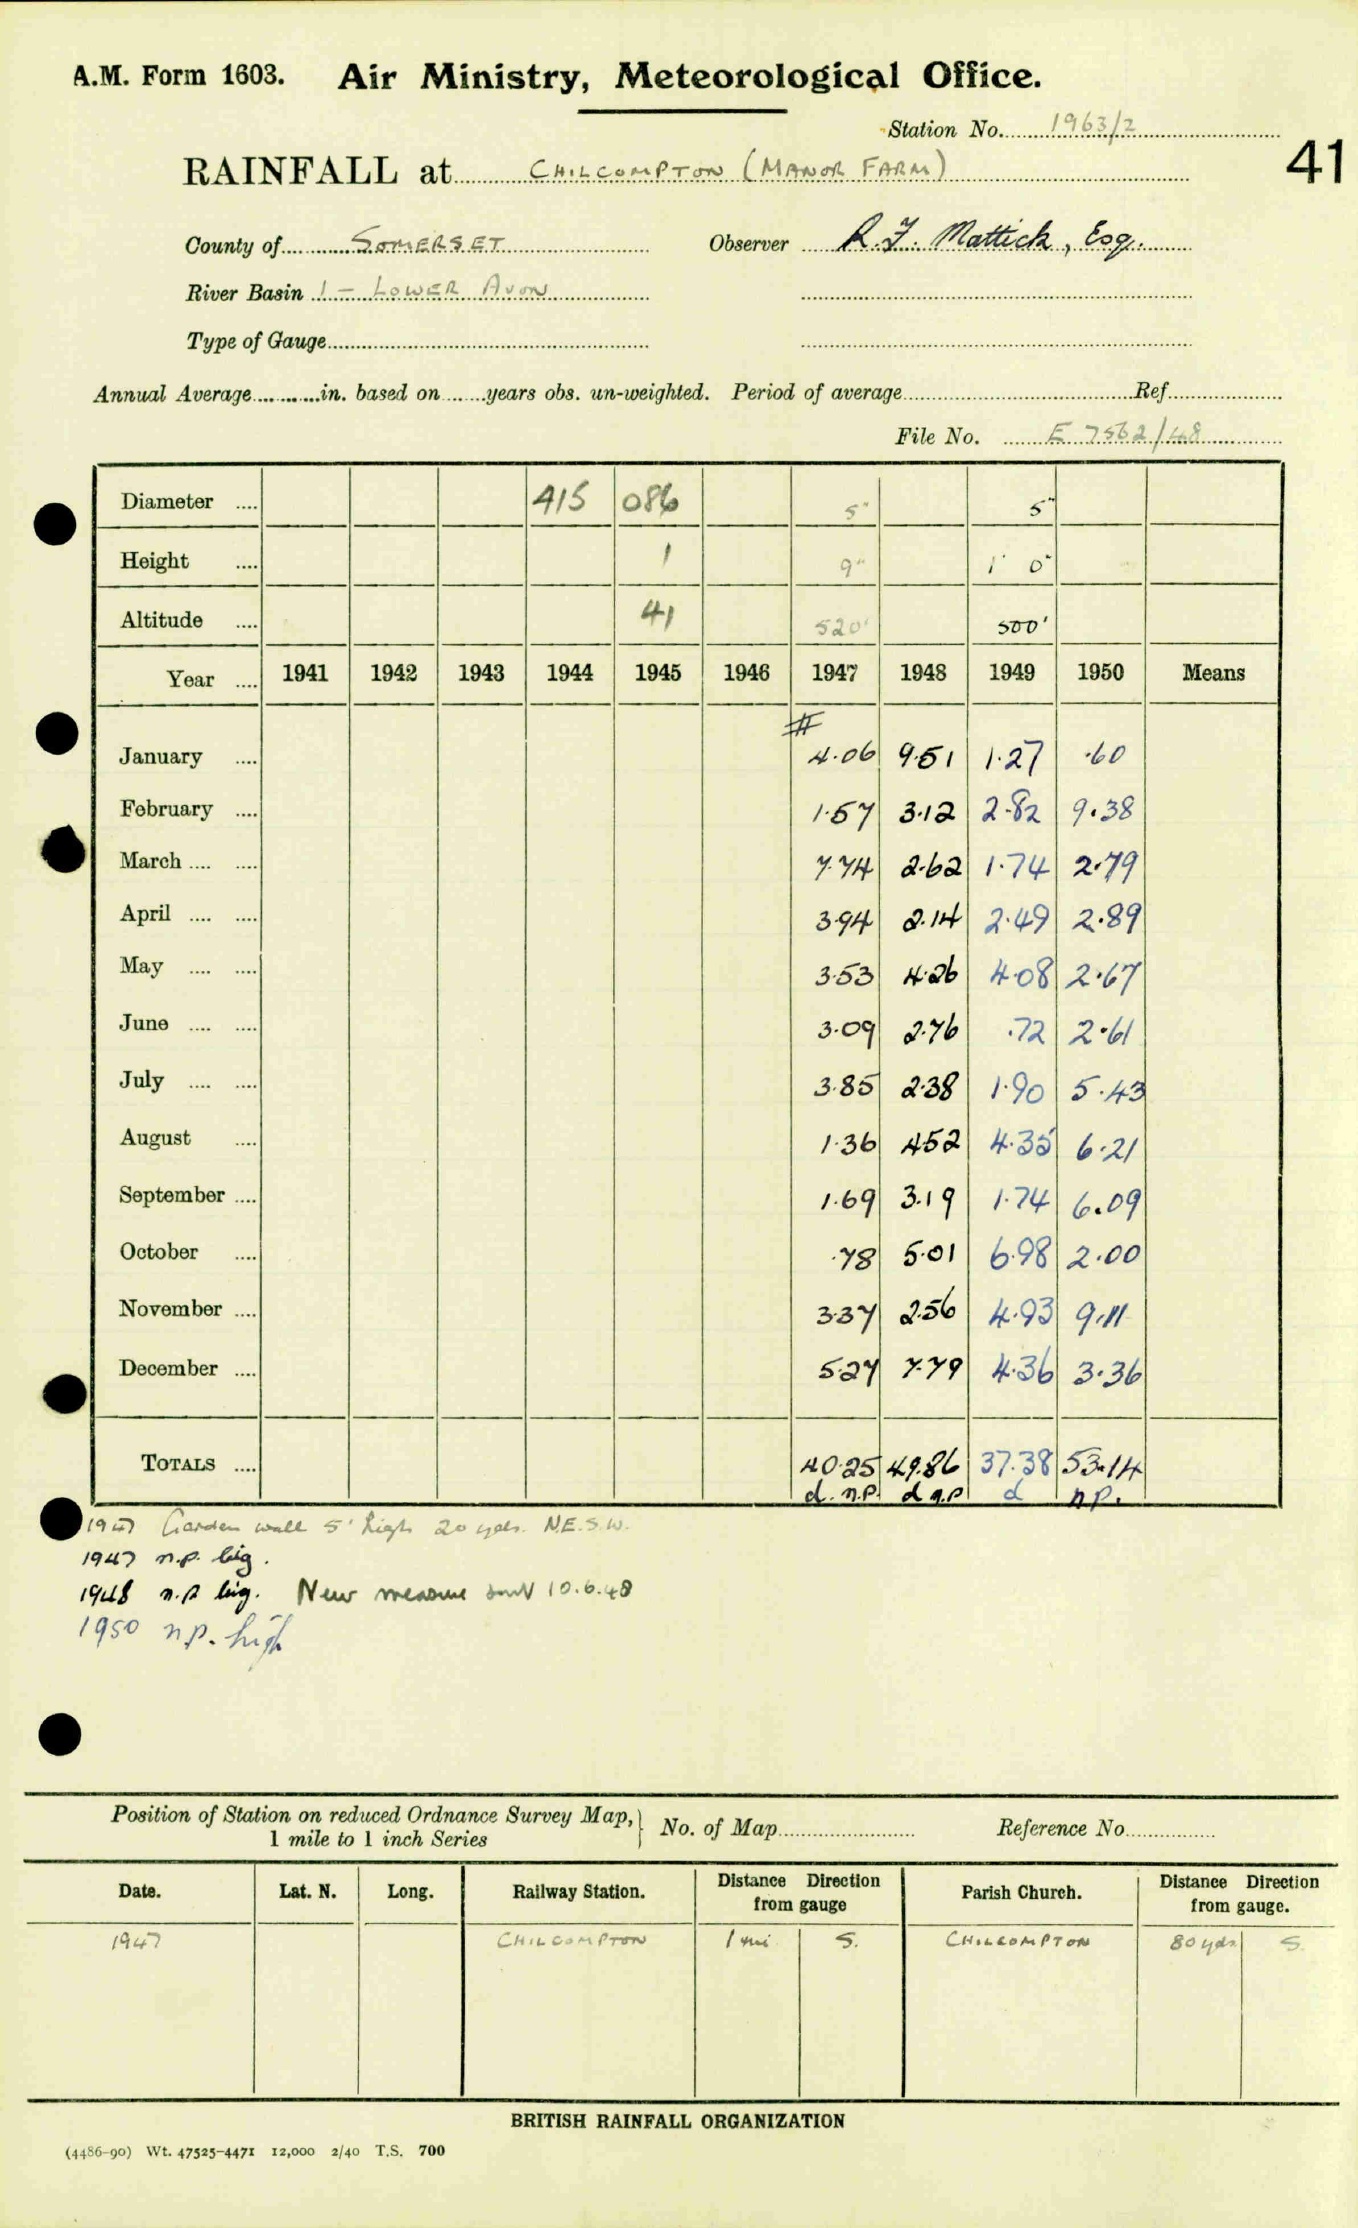 A.M. Form 1603. Air Ministry, Meteorological Office.
Station No. 1963/2
41
RAINFALL at CHILCOMPTON (MANOR FARM)
County of SOMERSET Observer R.F. Mattick, Esq.
River Basin 1 - LOWER AVON
Type of Gauge
Annual Average in. based on years obs. un-weighted. Period of average Ref
File No. E 7562/48
Diameter 415 086 5" 5"
Height 1 9" 1' 0"
Altitude 41 520' 500'
Year 1941 1942 1943 1944 1945 1946 1947 1948 1949 1950 Means
January 4.06 9.51 1.27 .60
February 1.57 3.12 2.82 9.38
March 7.74 2.62 1.74 2.79
April 3.94 2.14 2.49 2.89
May 3.53 4.26 4.08 2.67
June 3.09 2.76 .72 2.61
July 3.85 2.38 1.90 5.43
August 1.36 4.52 4.35 6.21
September 1.69 3.19 1.74 6.09
October .78 5.01 6.98 2.00
November 3.37 2.56 4.93 9.11
December 5.27 7.79 4.36 3.36
TOTALS 40.25 49.86 37.38 53.14
d. n.p. d n.p d n.p.
1947 Garden wall 5' high 20 yds. N.E.S.W.
1947 n.p. big.
1948 n.p. big. New measure sent 10.6.48
1950 n.p. high
Position of Station on reduced Ordnance Survey Map, 1 mile to 1 inch Series No. of Map Reference No.
Date. Lat. N. Long. Railway Station. Distance Direction from gauge Parish Church. Distance Direction from gauge.
1947 CHILCOMPTON 1 mi S. CHILCOMPTON 80 yds S.
BRITISH RAINFALL ORGANIZATION
(4486-90) Wt. 47525-4471 12,000 2/40 T.S. 700